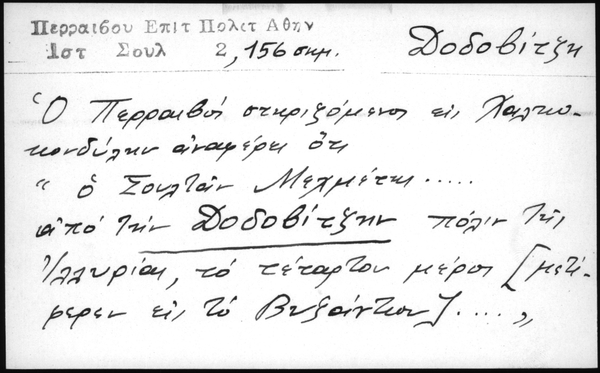 Περραιβου Επιτ Πολετ Αθην
Ιστ Σουλ 2, 156 σημ. Δοδοβίτζη
Ὁ Περραιβός στηριζόμενος εἰς Χαλκο-
κονδύλην ἀναφέρει ὅτι
" ὁ Σουλτάν Μεχμέτης .....
ἀπό τήν Δοδοβίτζην πόλιν τῆς
Ἰλλυρίας, τό τέταρτον μέρος [μετέ-
φερεν εἰς τό Βυζάντιον] .... "